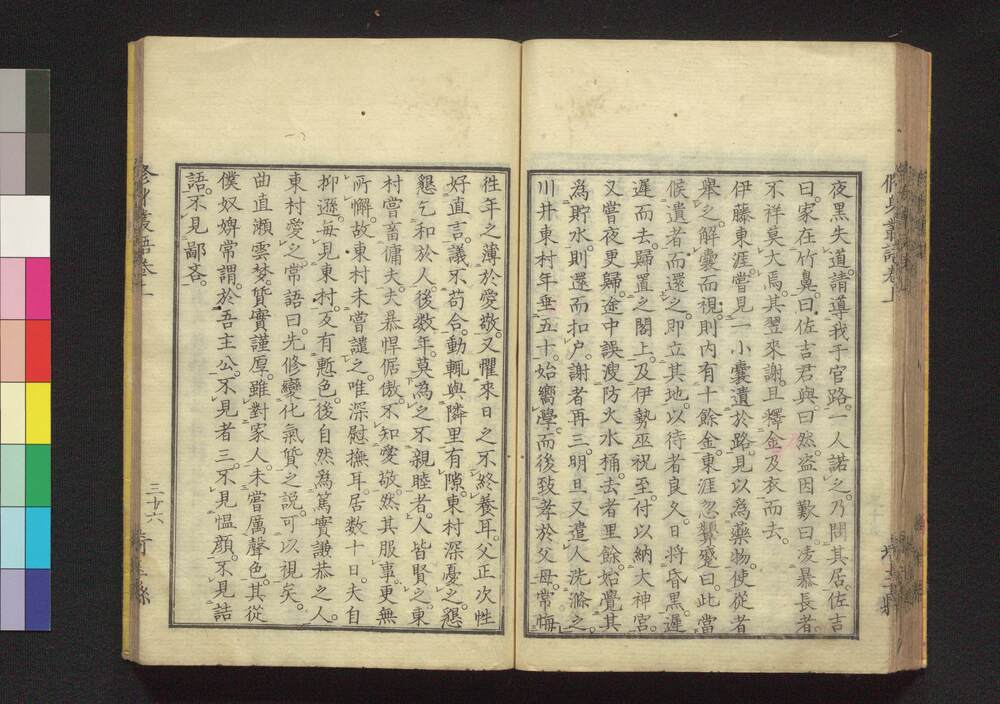 夜黑失道。請導我于官路。一人諾之。乃問其居。佐吉
曰。家在竹鼻。曰佐吉君與。曰然。盜因歎曰。凌暴長者。
不祥莫大焉。其翌來謝。且釋金及衣而去。
伊藤東涯嘗見一小囊遺於路。見以為藥物。使從者
舉之。解囊而視。則内有十餘金。東涯忽顰蹙曰。此當
候遺者而還之。即立其地。以待者良久。日將昏黒。遲
遲而去。歸置之閣上。及伊勢巫祝至。付以納大神宮。
又嘗夜更歸。途中誤溲防火水桶。去者里餘。始覺其
為貯水。則還而扣户。謝者再三。明旦又遣人洗滌之。
川井東村年垂五十。始嚮學。而後致孝於父母。常悔
徃年之薄於愛敬。又懼來日之不終養耳。父正次性
好直言。議不苟合。動輒與隣里有隙。東村深憂之。懇
懇乞和於人。後数年。莫為之不親睦者。人皆賢之。東
村嘗畜傭夫。夫暴悍倨傲。不知愛敬。然其服事。更無
所懈。故東村未嘗譴之。唯深慰撫耳。居数十日。夫自
抑遜。每見東村。乃有慙色。後自然為篤實謙恭之人。
東村愛之。常語曰。先修變化氣質之説。可以視矣。
曲直瀬雲夢。質實謹厚。雖對家人。未嘗厲聲色。其從
僕奴婢常謂。於吾主公。不見者三。不見慍顔。不見詰
語。不見鄙吝。
三十六